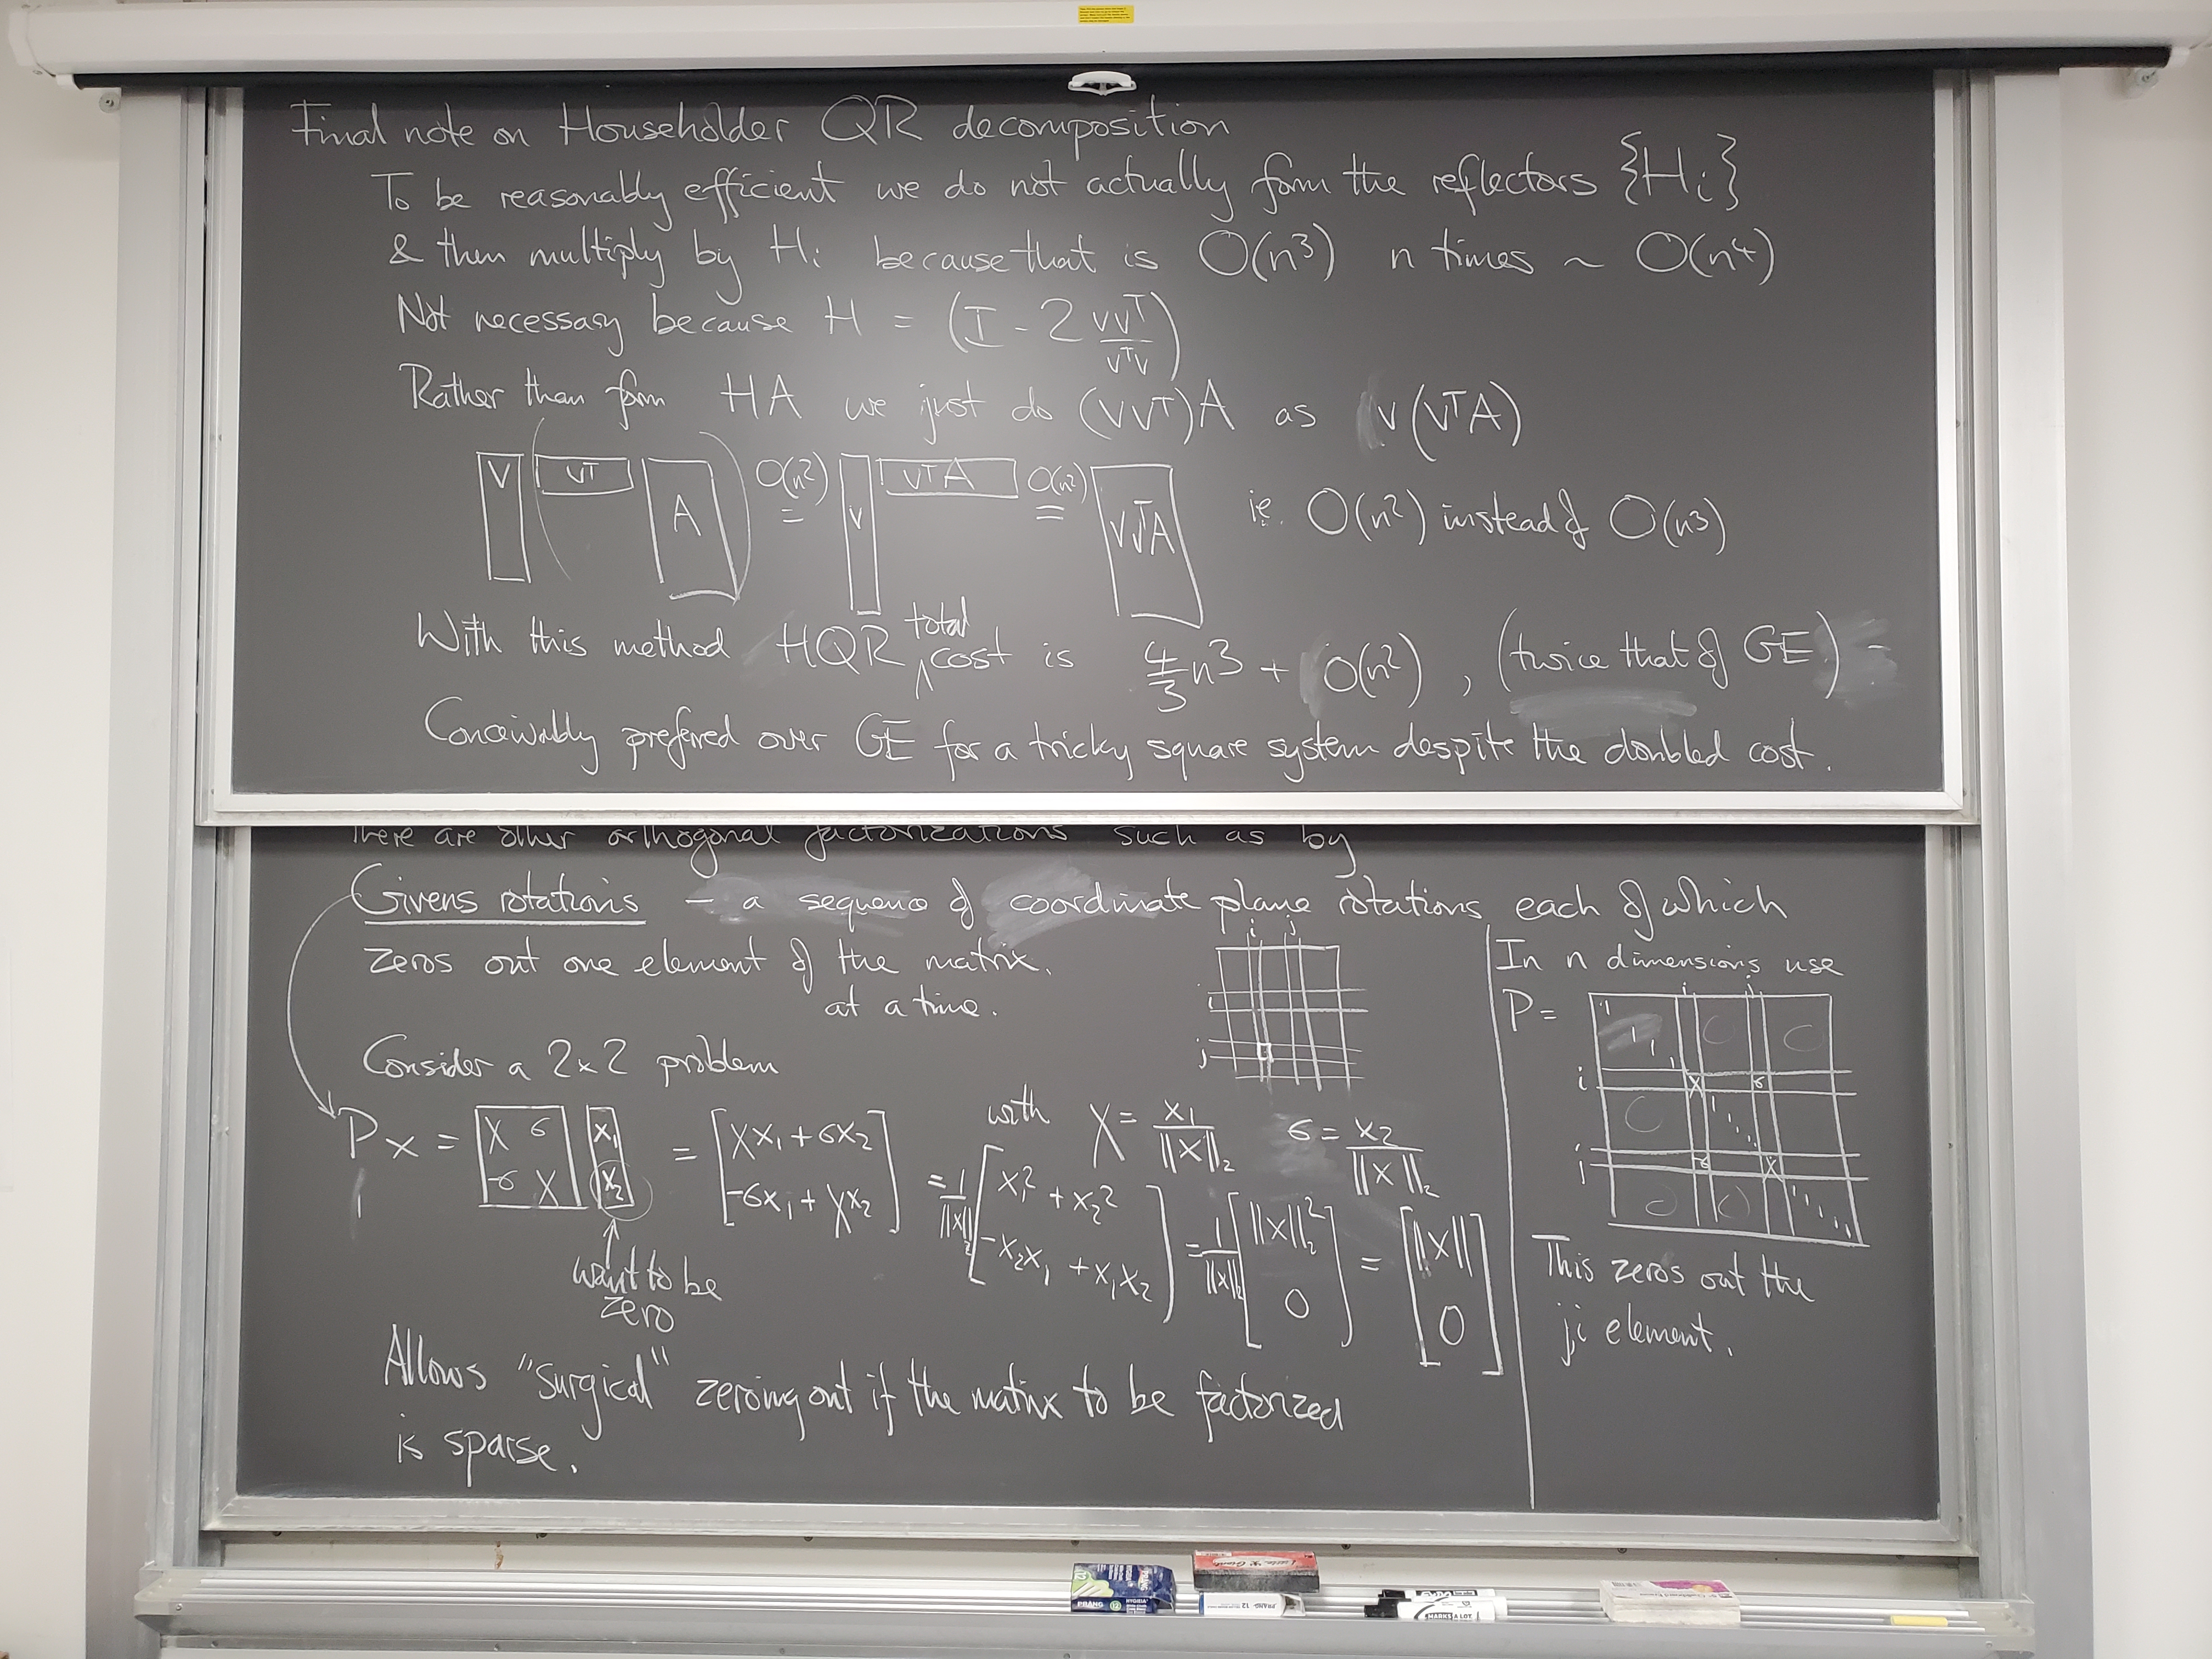 Final note on Householder QR decomposition
To be reasonably efficient we do not actually form the reflectors {Hi}
& then multiply by Hi because that is O(n³) n times ~ O(n⁴)
Not necessary because H = (I - 2 vvᵀ/vᵀv)
Rather than form HA we just do (vvᵀ)A as v(vᵀA)
V ( vᵀ A ) O(n²) = v vᵀA O(n²) = vvᵀA ie. O(n²) instead of O(n³)
With this method HQR total cost is 4/3 n³ + O(n²), (twice that of GE)
Conceivably preferred over GE for a tricky square system despite the doubled cost.
There are other orthogonal factorizations such as by
Givens rotations - a sequence of coordinate plane rotations each of which
zeros out one element of the matrix.
at a time.
i j
i
j
Consider a 2x2 problem
Px = [γ σ; -σ γ] [x₁; x₂] = [γx₁ + σx₂; -σx₁ + γx₂]
with γ = x₁/||x||₂ σ = x₂/||x||₂
= 1/||x||₂ [x₁² + x₂²; -x₂x₁ + x₁x₂] = 1/||x||₂ [||x||₂²; 0] = [||x||; 0]
want to be
zero
Allows "surgical" zeroing out if the matrix to be factorized
is sparse.
In n dimensions use
P =
i j
i γ σ
j -σ γ
This zeros out the
ji element.
PRANG
HYGIEIA
12
PRANG 12
MARKS A LOT